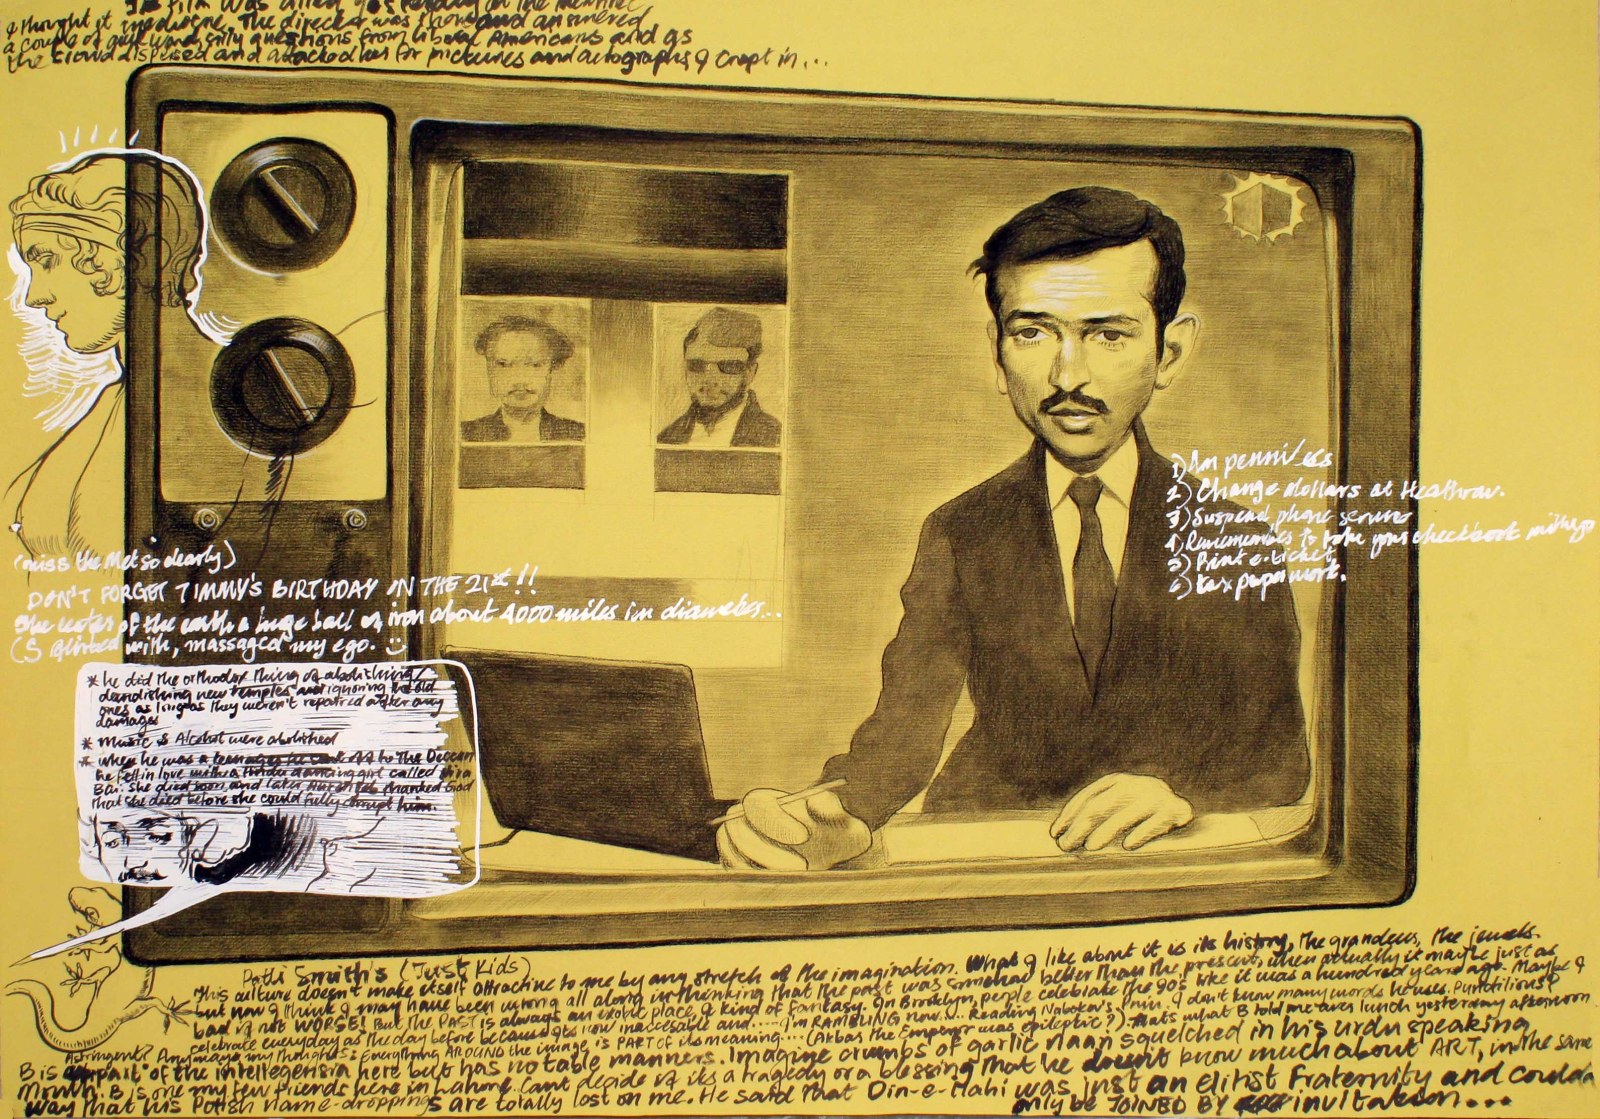 The film was
I thought it mediocre. The director was there and answered
a couple of silly questions from liberal Americans and as
the crowd dispersed and attacked her for pictures and autographs I crept in...
1) Am penniless
2) Change dollars at Heathrow.
3) Suspend phone service
4) Remember to take your checkbook
5) Print e-ticket
6) tax paperwork.
(miss the Met so dearly)
DON'T FORGET TIMMY'S BIRTHDAY ON THE 21st!!
the center of the earth a huge ball of iron about 4000 miles in diameter...
(S flirted with, massaged my ego. :)
* he did the orthodox thing of abolishing/
demolishing new temples and ignoring the old
ones as long as they weren't repaired after any
damages
* Music & Alcohol were abolished
* when he was a teenager he went to the Deccan
he fell in love with a Hindu dancing girl called Hira
Bai. She died soon and later thanked God
that she died before she could fully corrupt him.
Patti Smith's (Just Kids)
This culture doesn't make itself attractive to me by any stretch of the imagination. What I like about it is its history, the grandeur, the jewels.
but now I think I may have been wrong all along in thinking that the past was somehow better than the present, when actually it maybe just as
bad if not WORSE! But the PAST is always an exotic place, a kind of fantasy. In Brooklyn, people celebrate the 90's like it was a hundred years ago. Maybe I
celebrate everyday as the day before because its now inaccessible and..... I'm RAMBLING now... Reading Nabokov's Pnin. I don't know many words houses. Punctilious?
Astringent? Anyways my thoughts: Everything AROUND the image is PART of its meaning.... (Akbar the Emperor was epileptic?). thats what B told me over lunch yesterday afternoon
B is part of the intelligensia here but has no table manners. Imagine crumbs of garlic naan squelched in his urdu speaking
mouth. B is one my few friends here in Lahore. Cant decide if its a tragedy or a blessing that he doesnt know much about ART, in the same
way that his Polish name-droppings are totally lost on me. He said that Din-e-Ilahi was just an elitist fraternity and could
only be JOINED BY invitation...